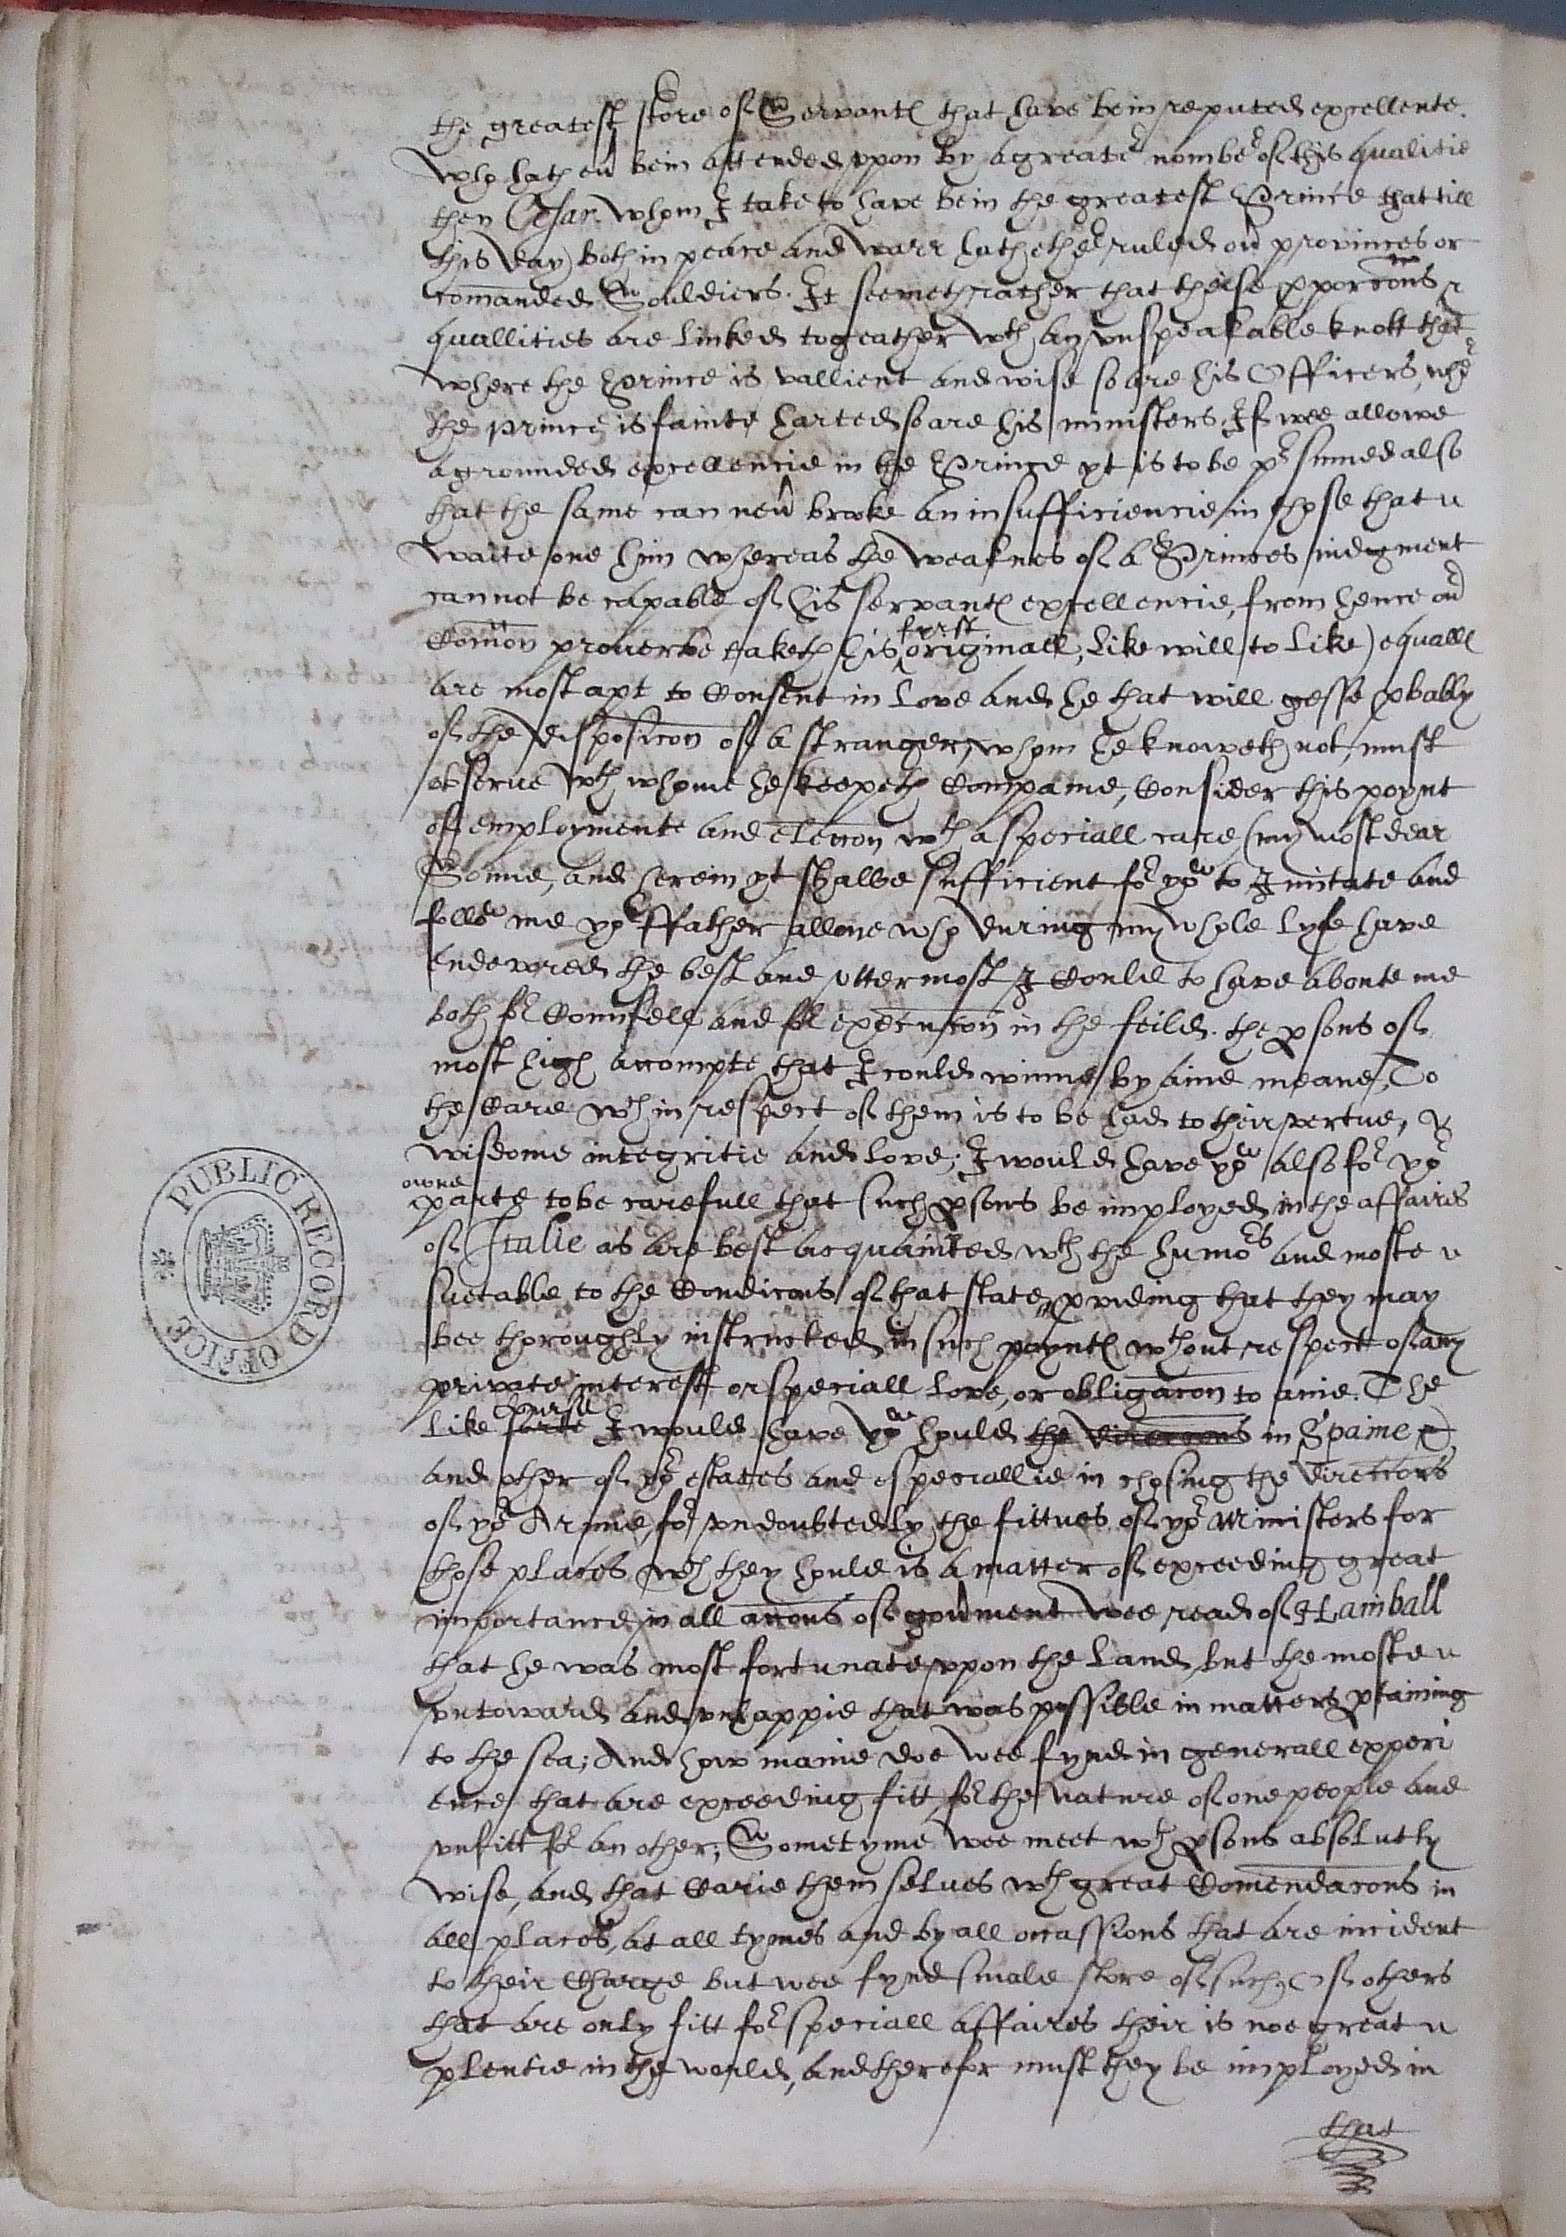 the greatest store of Servantes that have bein reputed excellente.
who hath eu bein attended vppon by a greatr nombr of this qualitie
then Cesar. whom I take to have bein the greatest Prince that till
this day) both in peace and warr hath ethr ruled ou provinces or
comanded Souldiers. It seemeth rather that theise pporcons
quallities are linked togeather wth an vnspeakable knott that
where the Prince is vallient and wise so are his Officers, whe
the prince is fainte harted so are his ministers. If wee allowe
a grounded excellencie in the Prince yt is to be prsumed also
that the same can neu brooke an insufficiencie in those that
waite one him whereas the weaknes of a Princes iudgment
cannot be capable of his servantes excellencie, from hence our
first
Comon prouerbe taketh his originall, Like will to Like) equalls
are most apt to Consent in Love and he that will gesse pbably
of the disposicon of a stranger, whom he knoweth not, must
observe wth whome he keepeth Companie, Consider this poynt
of employmente and eleccon wth a speciall care (my most dear
Sonne, and herein yt shalbe sufficient for you to Imitate and
follow me yor ffather allone who during my whole lyfe have
endevored the best and vttermost I Could to have aboute me
both for Counsell and for execucon in the feild. the psons of
most high accompte that I could winne by anie meanes, To
the Care wch in respect of them is to be had to their vertue,
wisdome integritie and love; I would have you also for yor
owne
parte to be carefull that such psons be imployed in the affaires
of Italie as are best acquainted wth the humors and moste
suetable to the Condicons of that state, pviding that they may
bee thoroughly instructed in such poyntes wthout respect of any
private interest or speciall love, or obligacon to anie. The
course
Like sorte I would have you hould the direccons in Spaine
and other of yor estates and especiallie in chosing the directors
of yor Armie, for vndoubtedly the fittnes of yor Ministers for
those places wch they hould is a matter of exceeding great
importance in all accons of goument wee read of Haniball
that he was most fortunate vppon the land but the moste
vntoward and vnhappie that was possible in matters ptaining
to the sea; And how manie doe wee fynd in generall experi
ence that are exceeding fitt for the nature of one people and
vnfitt for an other; Sometyme wee meet wth psons absolutly
wise, and that Carie themselves wth great Comendacons in
all places, at all tymes and by all occassions that are incident
to their Charge but wee fynd smale store of such, Of others
that are only fitt for speciall affaires their is noe great
plentie in the world, and therefor must they be imployed in
that
PUBLIC RECORD OFFICE